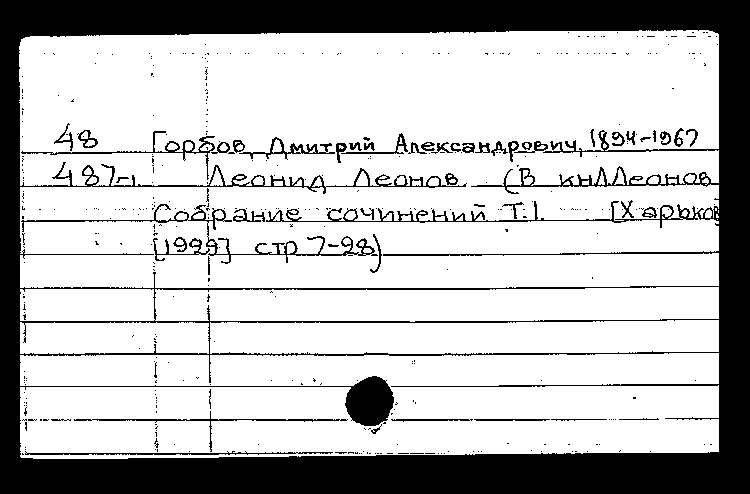 48 Горбов, Дмитрий Александрович, 1894-1967
487-1. Леонид Леонов. (В кн Л Леонов
Собрание сочинений Т.1. [Харьков
[1929] стр 7-28)